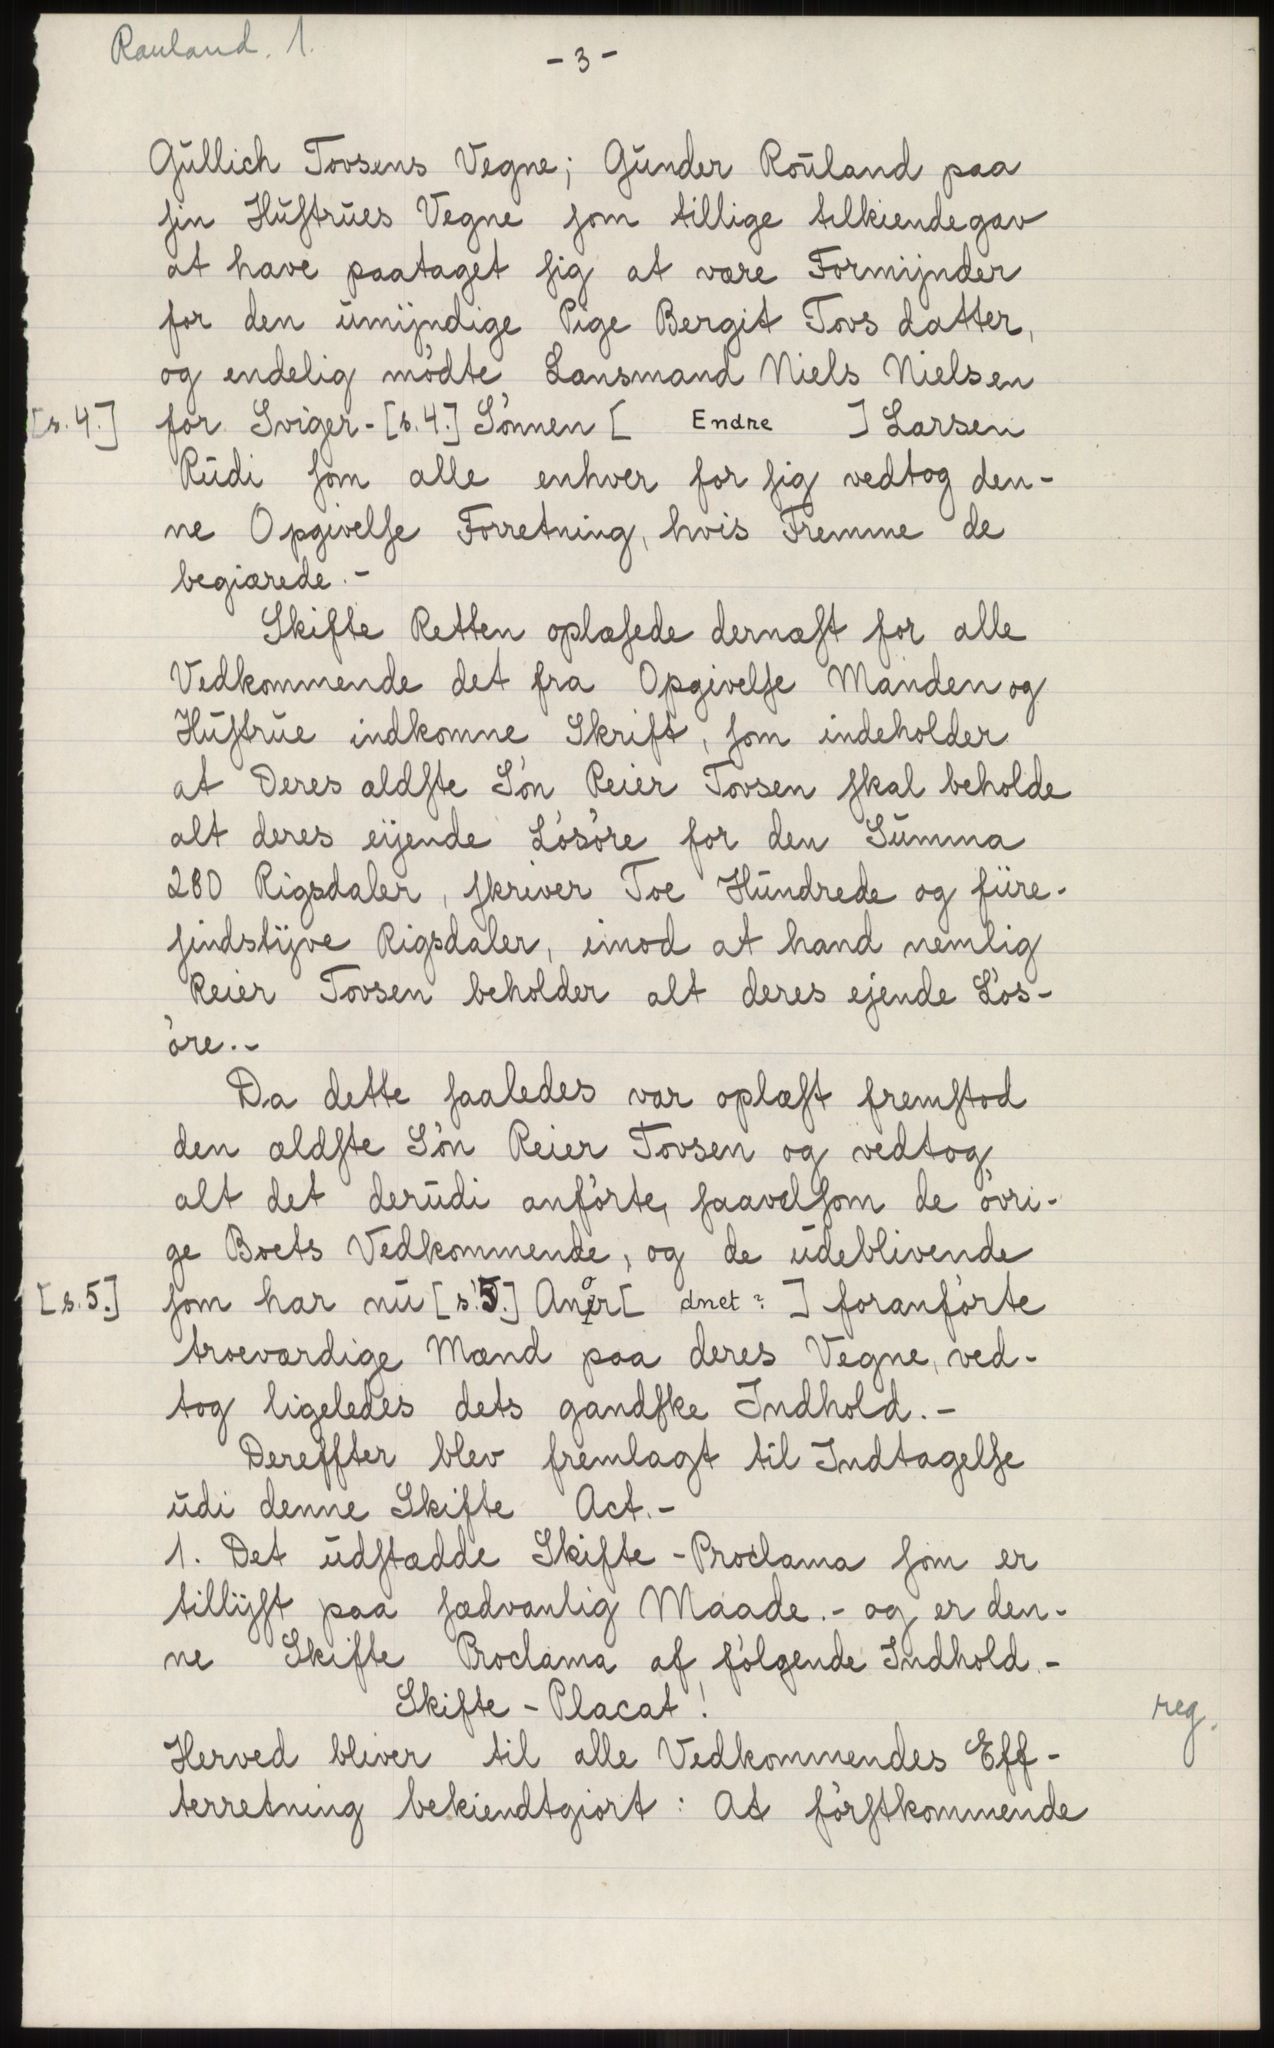 Rauland. 1.
- 3 -
Gullich Tovsens Vegne; Gunder Rouland paa
sin Hustrues Vegne som tillige tilkiendegav
at have paataget sig at være Formijnder
for den umijndige Pige Bergit Tovs datter,
og endelig mödte Lænsmand Niels Nielsen
[s. 4.] for Sviger-[s. 4.] Sönnen [ Endre ] Larsen
Rudi som alle enhver for sig vedtog den-
ne Opgivelse Forretning, hvis Fremme de
begiærede.-
Skifte Retten oplæsede dernæst for alle
Vedkommende det fra Opgivelse Manden og
Hustrue indkomne Skrift, som indeholder
at Deres ældste Sön Reier Tovsen skal beholde
alt deres eijende Lösöre for den Summa
280 Rigsdaler, skriver Toe Hundrede og fiire-
sindstijve Rigsdaler, imod at hand nemlig
Reier Tovsen beholder alt deres ejende Lös-
öre.-
Da dette saaledes var oplæst fremstod
den ældste Sön Reier Tovsen og vedtog
alt det derudi anförte, saavelsom de övri-
ge Boets Vedkommende, og de udeblivende
[s. 5.] som har nu [s. 5.] Anor[ dnet ? ] foranförte
troeværdige Mænd paa deres Vegne, ved-
tog ligeledes dets gandske Indhold.-
Dereffter blev fremlagt til Indtagelse
udi denne Skifte Act.-
1. Det udstædde Skifte-Proclama som er
tillijst paa sædvanlig Maade.- og er den-
ne Skifte Proclama af fölgende Indhold.-
Skifte-Placat!
reg.
Herved bliver til alle Vedkommendes Eff-
terretning bekiendtgiort: At förstkommende